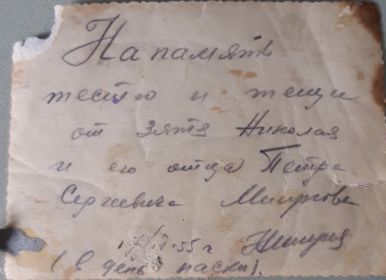 На память
тестю и тещи
от зятя Николая
и его отца Петра
Сергеевича
55 г
(в день пасхи).